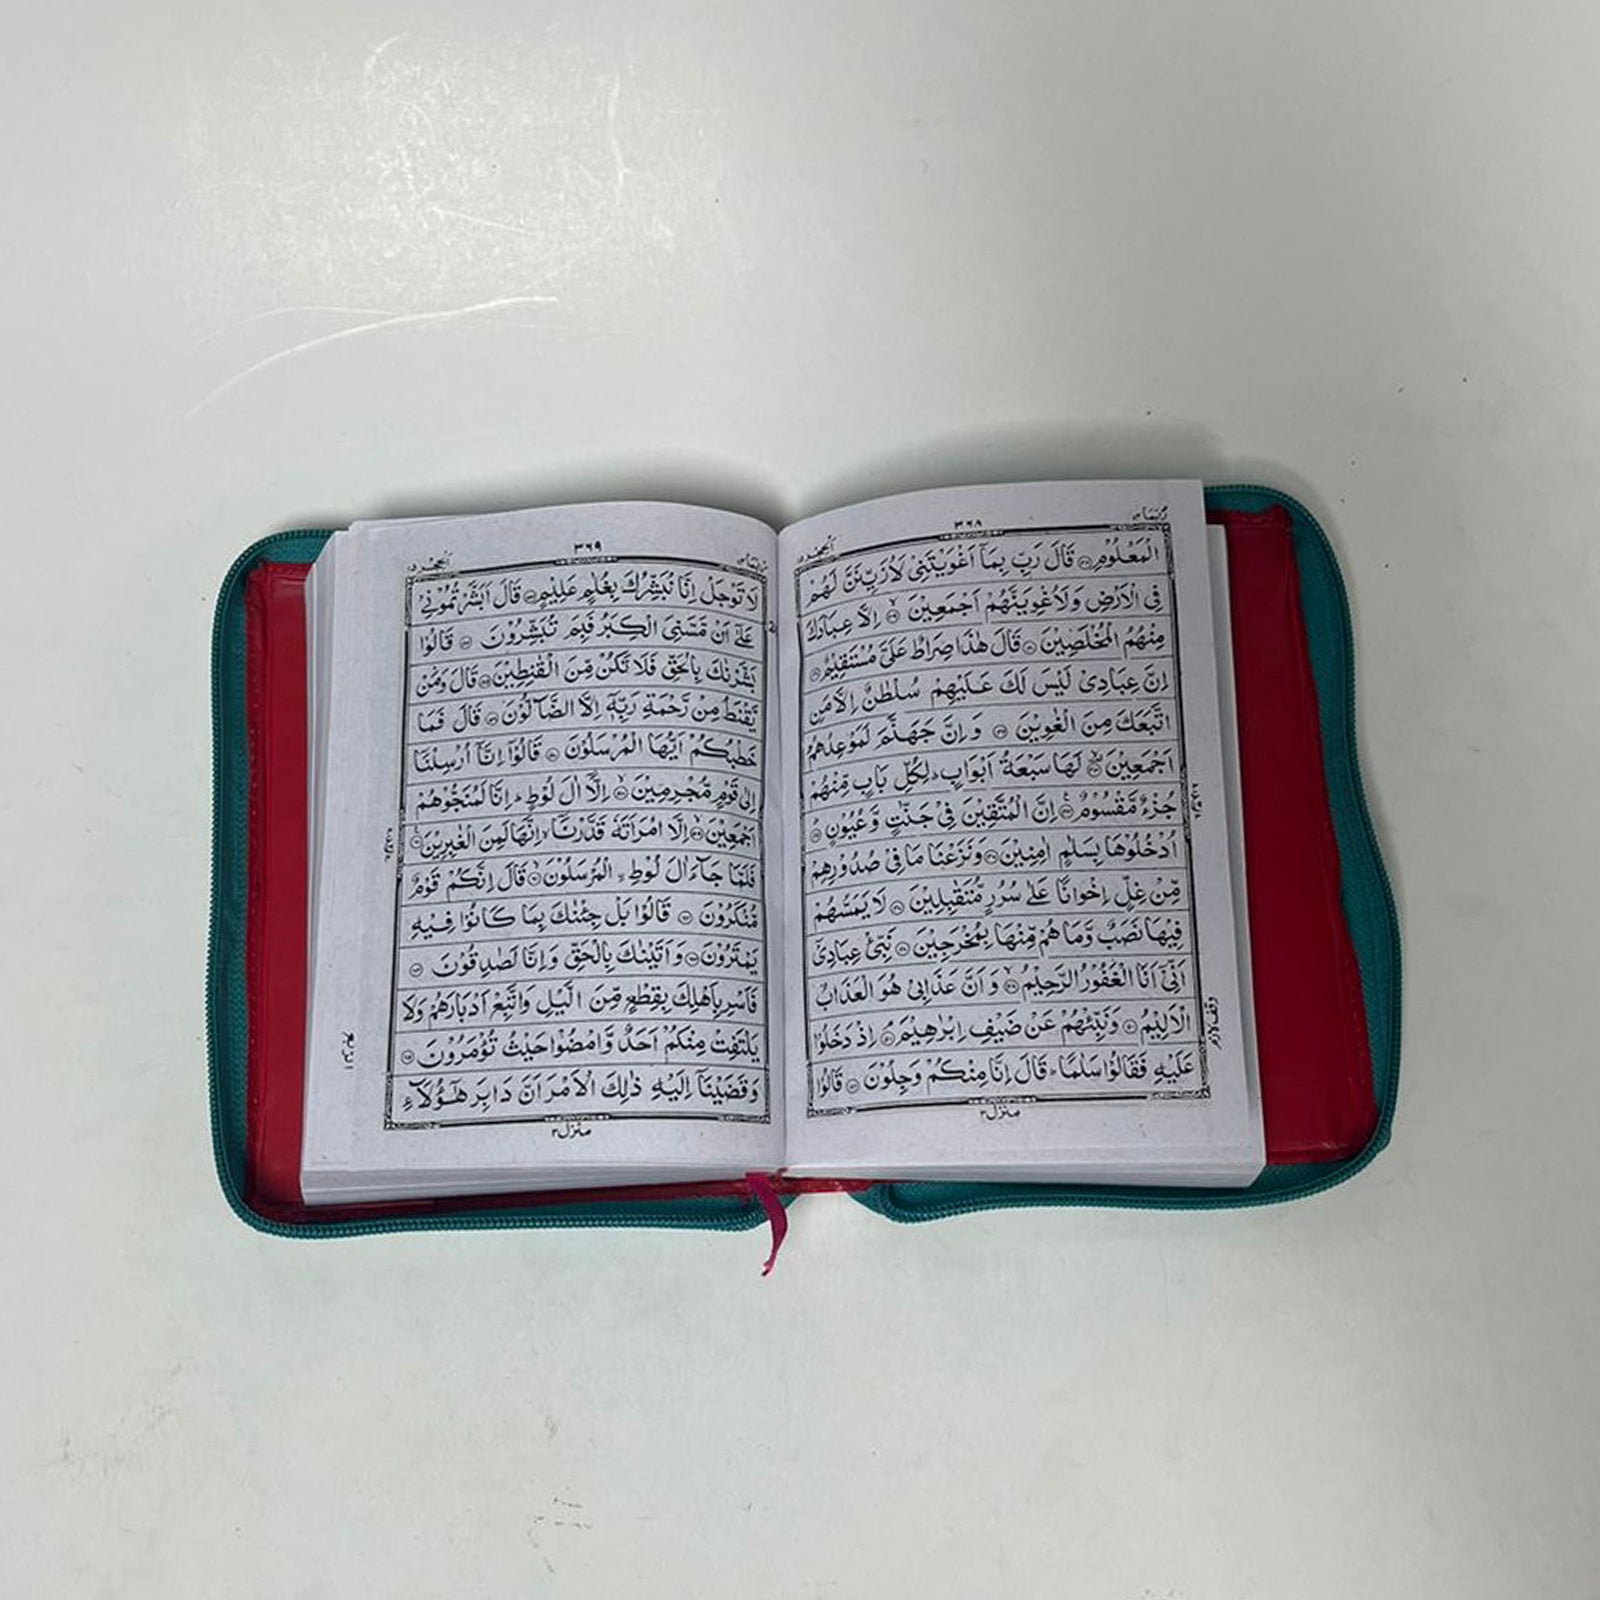 ربما ١٤
٣٦٨
الحجر ١٥
الْمَعْلُوْمِ ﴿٣٨﴾ قَالَ رَبِّ بِمَاۤ اَغْوَيْتَنِيْ لَاُزَيِّنَنَّ لَهُمْ
فِي الْاَرْضِ وَلَاُغْوِيَنَّهُمْ اَجْمَعِيْنَ ﴿٣٩﴾ اِلَّا عِبَادَكَ
مِنْهُمُ الْمُخْلَصِيْنَ ﴿٤٠﴾ قَالَ هٰذَا صِرَاطٌ عَلَيَّ مُسْتَقِيْمٌ ﴿٤١﴾
اِنَّ عِبَادِيْ لَيْسَ لَكَ عَلَيْهِمْ سُلْطٰنٌ اِلَّا مَنِ
اتَّبَعَكَ مِنَ الْغٰوِيْنَ ﴿٤٢﴾ وَ اِنَّ جَهَنَّمَ لَمَوْعِدُهُمْ
اَجْمَعِيْنَ ﴿٤٣﴾ لَهَا سَبْعَةُ اَبْوَابٍ ؕ لِكُلِّ بَابٍ مِّنْهُمْ
جُزْءٌ مَّقْسُوْمٌ ﴿٤٤﴾ اِنَّ الْمُتَّقِيْنَ فِيْ جَنّٰتٍ وَّعُيُوْنٍ ﴿٤٥﴾
اُدْخُلُوْهَا بِسَلٰمٍ اٰمِنِيْنَ ﴿٤٦﴾ وَنَزَعْنَا مَا فِيْ صُدُوْرِهِمْ
مِّنْ غِلٍّ اِخْوَانًا عَلٰى سُرُرٍ مُّتَقٰبِلِيْنَ ﴿٤٧﴾ لَا يَمَسُّهُمْ
فِيْهَا نَصَبٌ وَّمَا هُمْ مِّنْهَا بِمُخْرَجِيْنَ ﴿٤٨﴾ نَبِّئْ عِبَادِيْۤ
اَنِّيْۤ اَنَا الْغَفُوْرُ الرَّحِيْمُ ﴿٤٩﴾ وَ اَنَّ عَذَابِيْ هُوَ الْعَذَابُ
الْاَلِيْمُ ﴿٥٠﴾ وَنَبِّئْهُمْ عَنْ ضَيْفِ اِبْرٰهِيْمَ ﴿٥١﴾ اِذْ دَخَلُوْا
عَلَيْهِ فَقَالُوْا سَلٰمًا ؕ قَالَ اِنَّا مِنْكُمْ وَجِلُوْنَ ﴿٥٢﴾ قَالُوْا
وقف لازم
منزل ٣
ربما ١٤
٣٦٩
الحجر ١٥
لَا تَوْجَلْ اِنَّا نُبَشِّرُكَ بِغُلٰمٍ عَلِيْمٍ ﴿٥٣﴾ قَالَ اَبَشَّرْتُمُوْنِيْ
عَلٰۤى اَنْ مَّسَّنِيَ الْكِبَرُ فَبِمَ تُبَشِّرُوْنَ ﴿٥٤﴾ قَالُوْا
بَشَّرْنٰكَ بِالْحَقِّ فَلَا تَكُنْ مِّنَ الْقٰنِطِيْنَ ﴿٥٥﴾ قَالَ وَمَنْ
يَّقْنَطُ مِنْ رَّحْمَةِ رَبِّهٖۤ اِلَّا الضَّآلُّوْنَ ﴿٥٦﴾ قَالَ فَمَا
خَطْبُكُمْ اَيُّهَا الْمُرْسَلُوْنَ ﴿٥٧﴾ قَالُوْۤا اِنَّاۤ اُرْسِلْنَاۤ
اِلٰى قَوْمٍ مُّجْرِمِيْنَ ﴿٥٨﴾ اِلَّاۤ اٰلَ لُوْطٍ ؕ اِنَّا لَمُنَجُّوْهُمْ
اَجْمَعِيْنَ ﴿٥٩﴾ اِلَّا امْرَاَتَهٗ قَدَّرْنَاۤ ۙ اِنَّهَا لَمِنَ الْغٰبِرِيْنَ ﴿٦٠﴾
فَلَمَّا جَآءَ اٰلَ لُوْطِ ۨ الْمُرْسَلُوْنَ ﴿٦١﴾ قَالَ اِنَّكُمْ قَوْمٌ
مُّنْكَرُوْنَ ﴿٦٢﴾ قَالُوْا بَلْ جِئْنٰكَ بِمَا كَانُوْا فِيْهِ
يَمْتَرُوْنَ ﴿٦٣﴾ وَ اَتَيْنٰكَ بِالْحَقِّ وَ اِنَّا لَصٰدِقُوْنَ ﴿٦٤﴾
فَاَسْرِ بِاَهْلِكَ بِقِطْعٍ مِّنَ الَّيْلِ وَاتَّبِعْ اَدْبَارَهُمْ وَلَا
يَلْتَفِتْ مِنْكُمْ اَحَدٌ وَّامْضُوْا حَيْثُ تُؤْمَرُوْنَ ﴿٦٥﴾
وَقَضَيْنَاۤ اِلَيْهِ ذٰلِكَ الْاَمْرَ اَنَّ دَابِرَ هٰۤؤُلَآءِ
منزل ٣